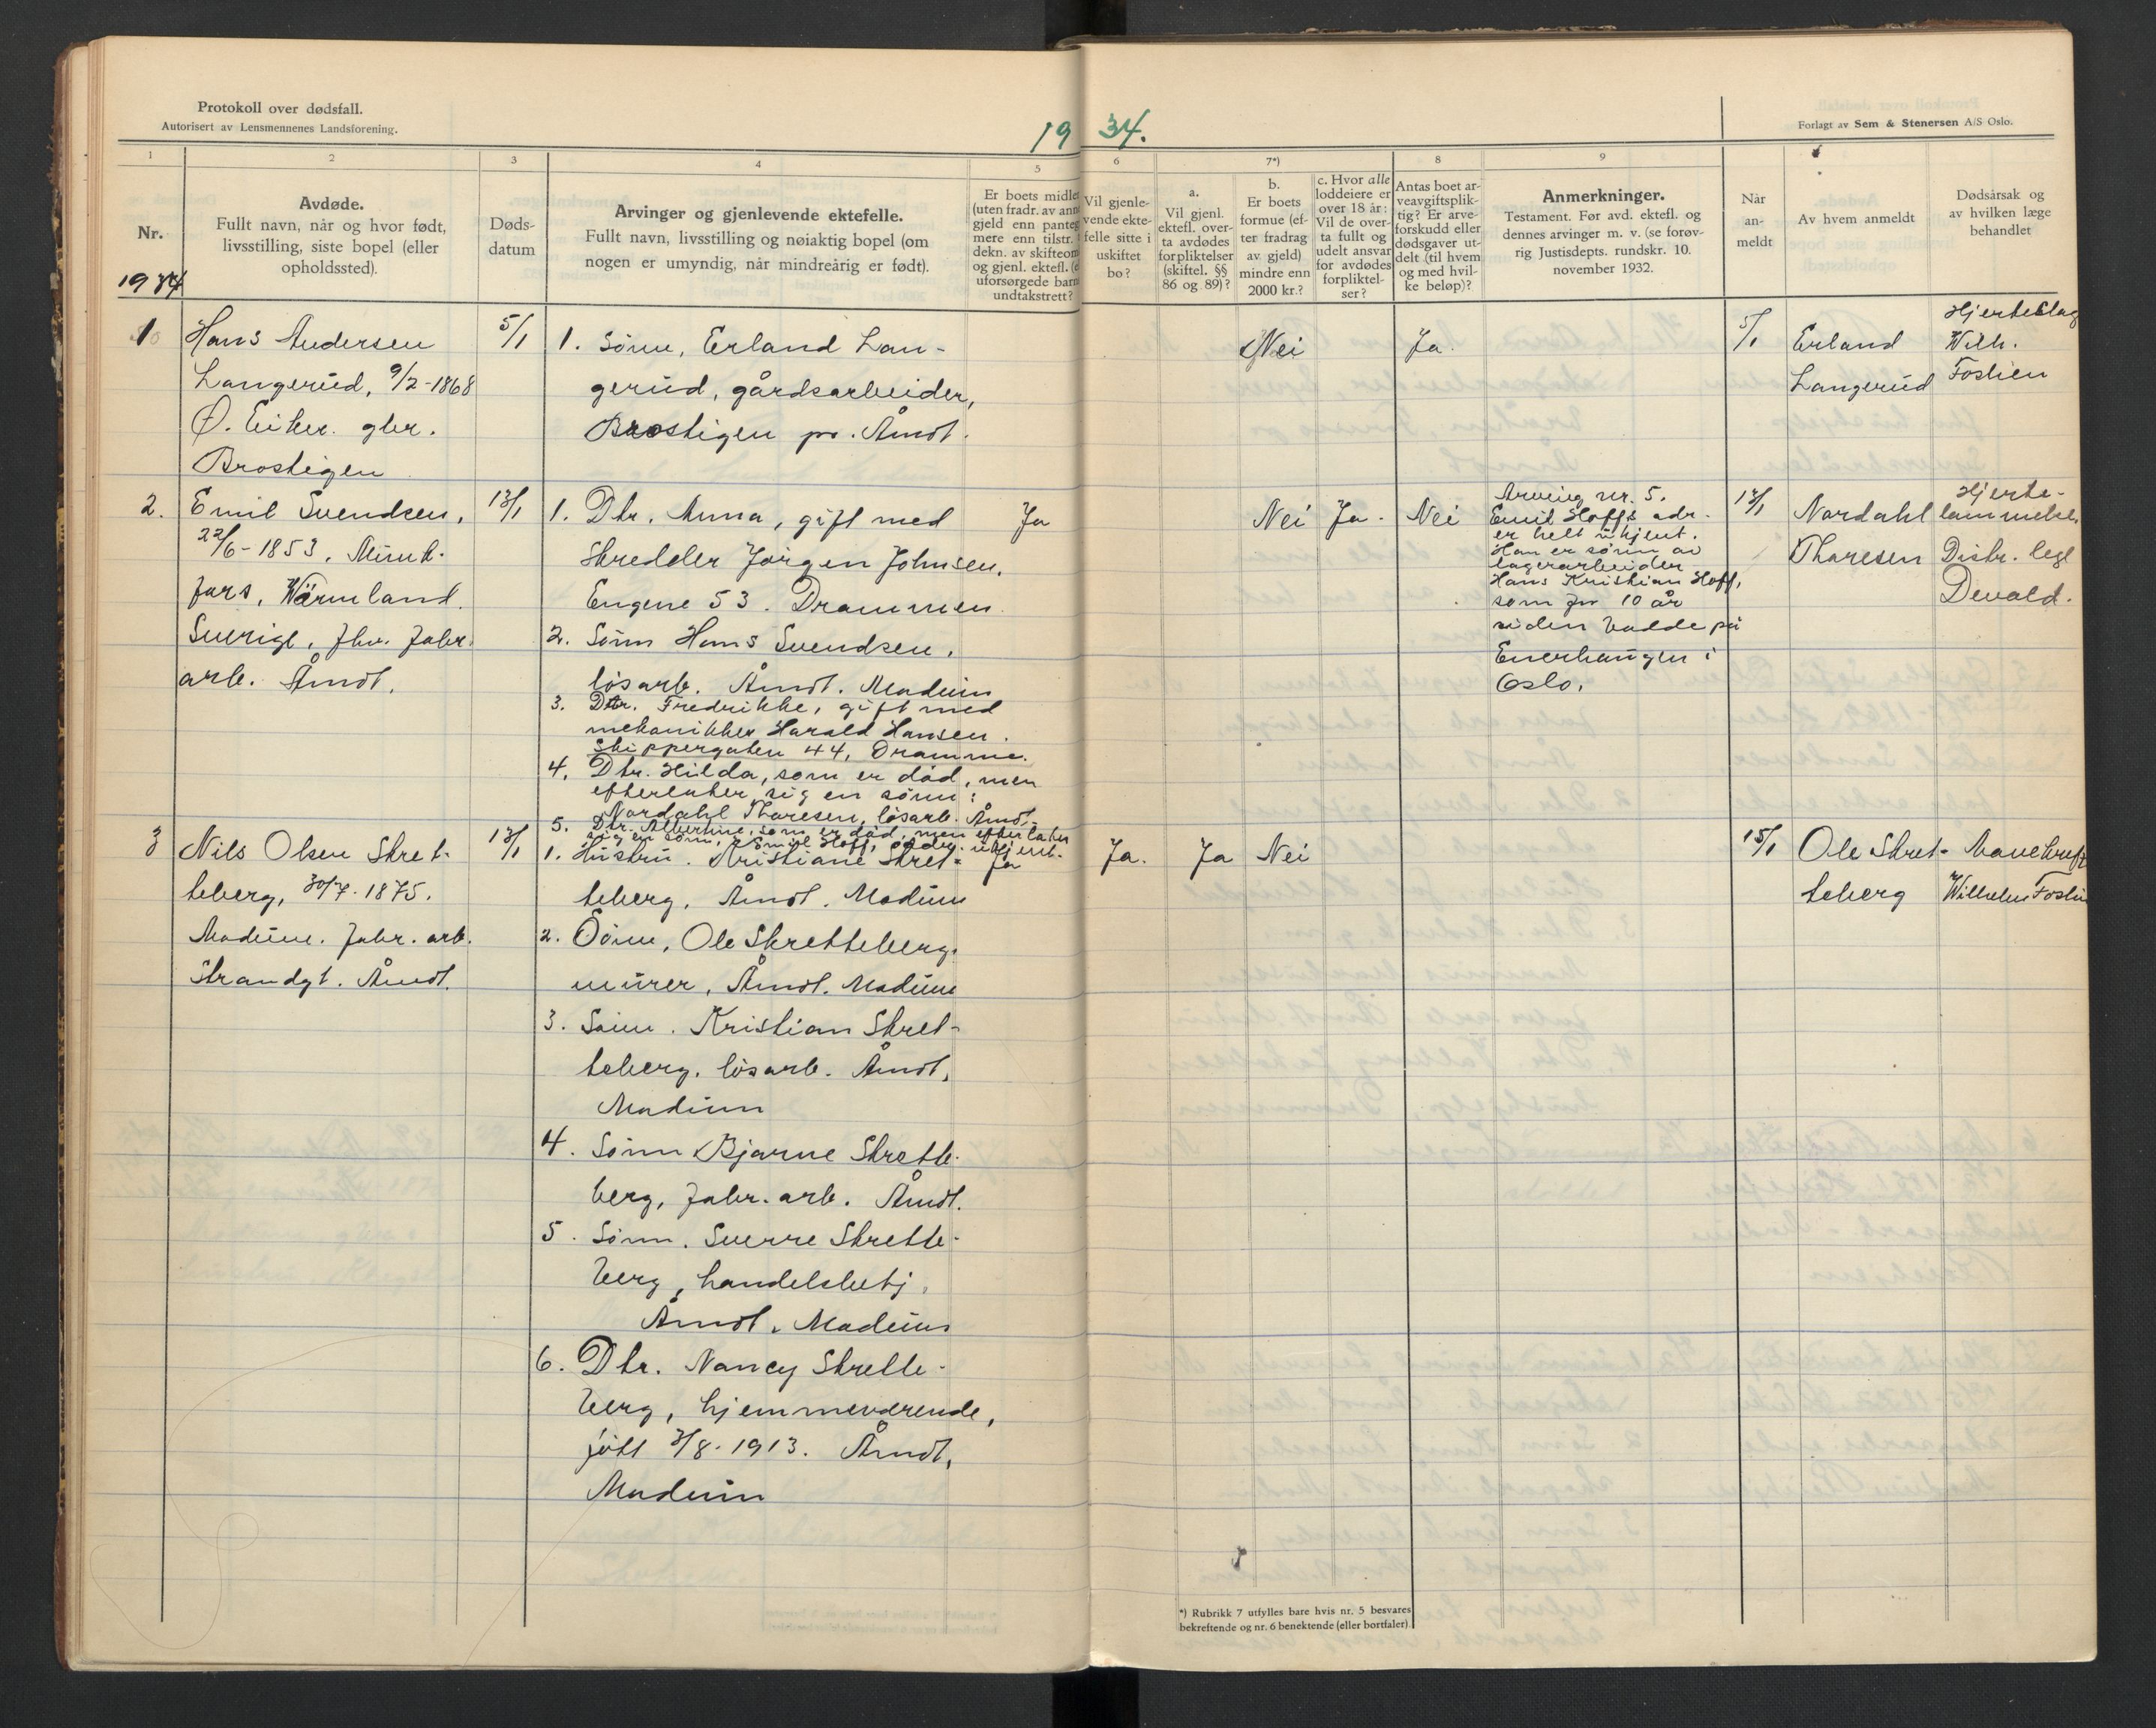 Protokoll over dødsfall.
Autorisert av Lensmennenes Landsforening.
19 34.
Forlagt av Sem & Stenersen A/S Oslo.
1
2
3
4
5
6
7*)
8
9
Nr.
1934
Avdøde.
Fullt navn, når og hvor født,
livsstilling, siste bopel (eller
opholdssted).
Døds-
datum
Arvinger og gjenlevende ektefelle.
Fullt navn, livsstilling og nøiaktig bopel (om
nogen er umyndig, når mindreårig er født).
Er boets midle
(uten fradr. av ann
gjeld enn panteg
mere enn tilstr.
dekn. av skifteom
og gjenl. ektefl. (e
uforsørgede barn
undtakstrett?
Vil gjenle-
vende ekte-
felle sitte i
uskiftet
bo?
a.
Vil gjenl.
ektefl. over-
ta avdødes
forpliktelser
(skiftel. §§
86 og 89)?
b.
Er boets
formue (ef-
ter fradrag
av gjeld)
mindre enn
2000 kr.?
c. Hvor alle
loddeiere er
over 18 år:
Vil de over-
ta fullt og
udelt ansvar
for avdødes
forpliktel-
ser?
Antas boet ar-
veavgiftsplik-
tig? Er arve-
forskudd eller
dødsgaver ut-
delt (til hvem
og med hvil-
ke beløp)?
Anmerkninger.
Testament. Før avd. ektefl. og
dennes arvinger m. v. (se forøv-
rig Justisdepts. rundskr. 10.
november 1932.
Når
an-
meldt
Av hvem anmeldt
Dødsårsak og
av hvilken læge
behandlet
1
Hans Andersen
Langerud, 9/2-1868
Ø. Eiker. gbr.
Brostigen
5/1
1. Sønn, Erland Lan-
gerud, gårdsarbeider,
Brostigen pr. Åmot.
Nei
Ja.
5/1
Erland
Langerud
Hjerteslag
Wilh.
Foslien
2.
Emil Svendsen,
22/6-1853,
fors, Wärmland.
Sverige, fhv. fabr.
arb. Åmot.
13/1
1. Dtr. Anna, gift med
skredder Jørgen Johnsen,
Engene 53. Drammen.
2. Sønn Hans Svendsen,
løsarb. Åmot. Modum
3. Dtr. Fredrikke, gift med
mekanikker Harald Hansen.
Skippergaten 44, Dramme.
4. Dtr. Hilda, som er død, men
efterlater sig en sønn:
Nordahl Thoresen, løsarb. Åmot.
5. Dtr. Albertine, som er død, men efterlater
sig en sønn, Emil Hoff, adr. ukjent.
Ja
Nei
Ja.
Nei
Arving nr. 5.
Emil Hoffs adr.
er helt ukjent.
Han er sønn av
lagerarbeider
Hans Kristian Hoff,
som for 10 år
siden bodde på
Enerhaugen i
Oslo.
13/1
Nordahl
Thoresen
Hjerte-
lammelse,
Distr. lege
Devold.
3
Nils Olsen Skret-
teberg, 30/7-1875.
Modum. fabr. arb.
Strandgt. Åmot.
13/1
1. Hustru. Kristiane Skret-
teberg, Åmot. Modum
2. Sønn, Ole Skretteberg,
murer, Åmot. Modum
3. Sønn. Kristian Skret-
teberg, løsarb. Åmot,
Modum
4. Sønn Bjarne Skrette-
berg, fabr. arb. Åmot.
5. Sønn. Sverre Skrette-
berg, handelsbetj.
Åmot. Modum
6. Dtr. Nancy Skrette-
berg, hjemmeværende,
født 3/8-1913. Åmot,
Modum
Ja
Ja.
Ja
Nei
15/1
Ole Skret-
teberg
Mavekreft
Wilhelm Foslien
*) Rubrikk 7 utfylles bare hvis nr. 5 besvares
bekreftende og nr. 6 benektende (eller bortfaler).